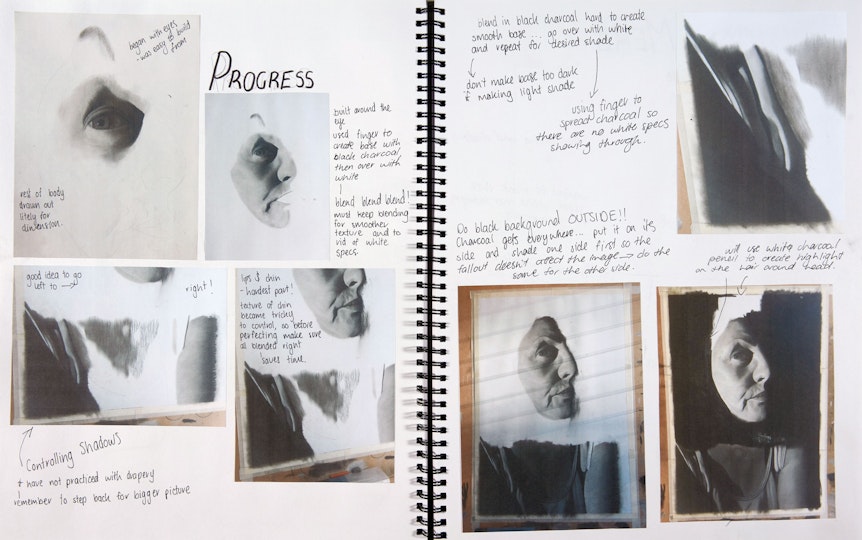 began with eyes
- was easy to build
from
PROGRESS
rest of body
drawn out
litely for
dimension.
built around the
eye
used finger to
create base with
black charcoal,
then over with
white
blend blend blend!
must keep blending
for smoother
texture and to
rid of white
specs.
good idea to go
left to →
right!
lips & chin
- hardest part!
texture of chin
became tricky
to control, so before
perfecting make sure
all blended right
saves time.
Controlling Shadows
+ have not practiced with drapery
remember to step back for bigger picture
blend in black charcoal hard to create
smooth base... go over with white
and repeat for desired shade
don't make base too dark
if making light shade
using finger to
spread charcoal so
there are no white specs
showing through.
Do black background OUTSIDE!!
Charcoal gets everywhere... put it on its
side and shade one side first so the
fallout doesn't affect the image → do the
same for the other side.
will use white charcoal
pencil to create highlight
on the hair around head.